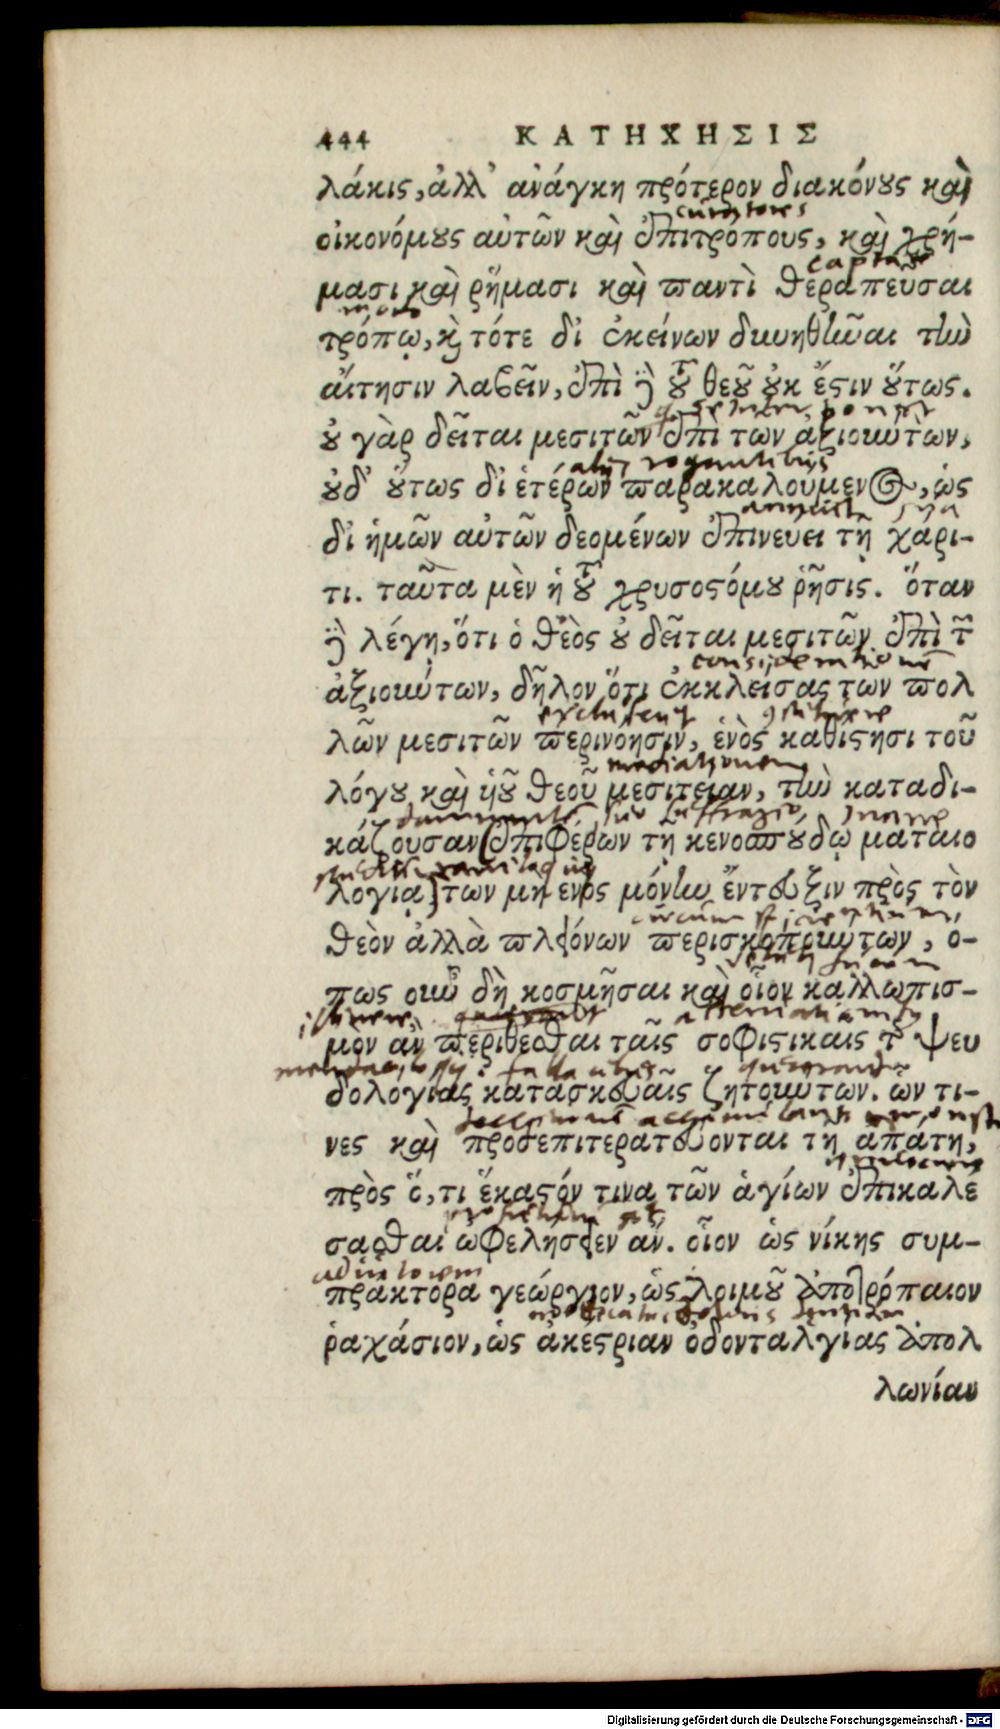 444 ΚΑΤΗΧΗΣΙΣ
λάκις, ἀλλ' ἀνάγκη πρότερον διακόνους καὶ
curatores
οἰκονόμους αὐτῶν καὶ ἐπιτρόπους, καὶ χρή-
μασι καὶ ῥήμασι καὶ παντὶ θεραπεῦσαι
modo
τρόπῳ, καὶ τότε δι ἐκείνων δυνηθῆναι τὴν
αἴτησιν λαβεῖν, ἐπὶ δὲ τοῦ θεοῦ οὐκ ἔστιν οὕτως.
οὐ γὰρ δεῖται μεσιτῶν ἐπὶ των ἀξιούντων,
alijs rogantibus
οὐδ' οὕτως δι ἑτέρων παρακαλούμενος, ὡς
δι ἡμῶν αὐτῶν δεομένων ἐπινευει τῇ χάρι-
τι. ταῦτα μὲν ἡ τοῦ χρυσοστόμου ῥῆσις. ὅταν
δὲ λέγῃ, ὅτι ὁ θεὸς οὐ δεῖται μεσιτῶν ἐπὶ τῶν
ἀξιούντων, δῆλον ὅτι ἐκκλείσας των πολ
λῶν μεσιτῶν περινόησιν, ἑνὸς καθίστησι τοῦ
mediationem
λόγου καὶ υἱοῦ θεοῦ μεσιτείαν, τὴν καταδι-
κάζουσαν (ἐπιφέρων τῇ κενοσπουδῳ ματαιο
λογίᾳ) των μὴ ἑνὸς μόνου ἔντευξιν πρὸς τὸν
θεὸν ἀλλὰ πλειόνων περισκοπούντων, ὅ-
πως οὖν δὴ κοσμῆσαι καὶ οἷον καλλωπισ-
μὸν ἂν περιθεσθαι ταῖς σοφιστικαις τῶν ψευ
δολογίας κατασκευαῖς ζητούντων. ὧν τι-
νες καὶ προσεπιτερατεύονται τῇ ἀπάτῃ,
πρὸς ὅ,τι ἕκαστόν τινα τῶν ἁγίων ἐπικαλέ
σασθαι ὠφελήσειεν ἄν. οἷον ὡς νίκης συμ-
adiutorem
πράκτορα γεώργιον, ὡς λοιμοῦ ἀποτρόπαιον
ῥαχάσιον, ὡς ἀκέστριαν ὀδονταλγίας ἀπολ
λωνίαν
Digitalisierung gefördert durch die Deutsche Forschungsgemeinschaft - DFG